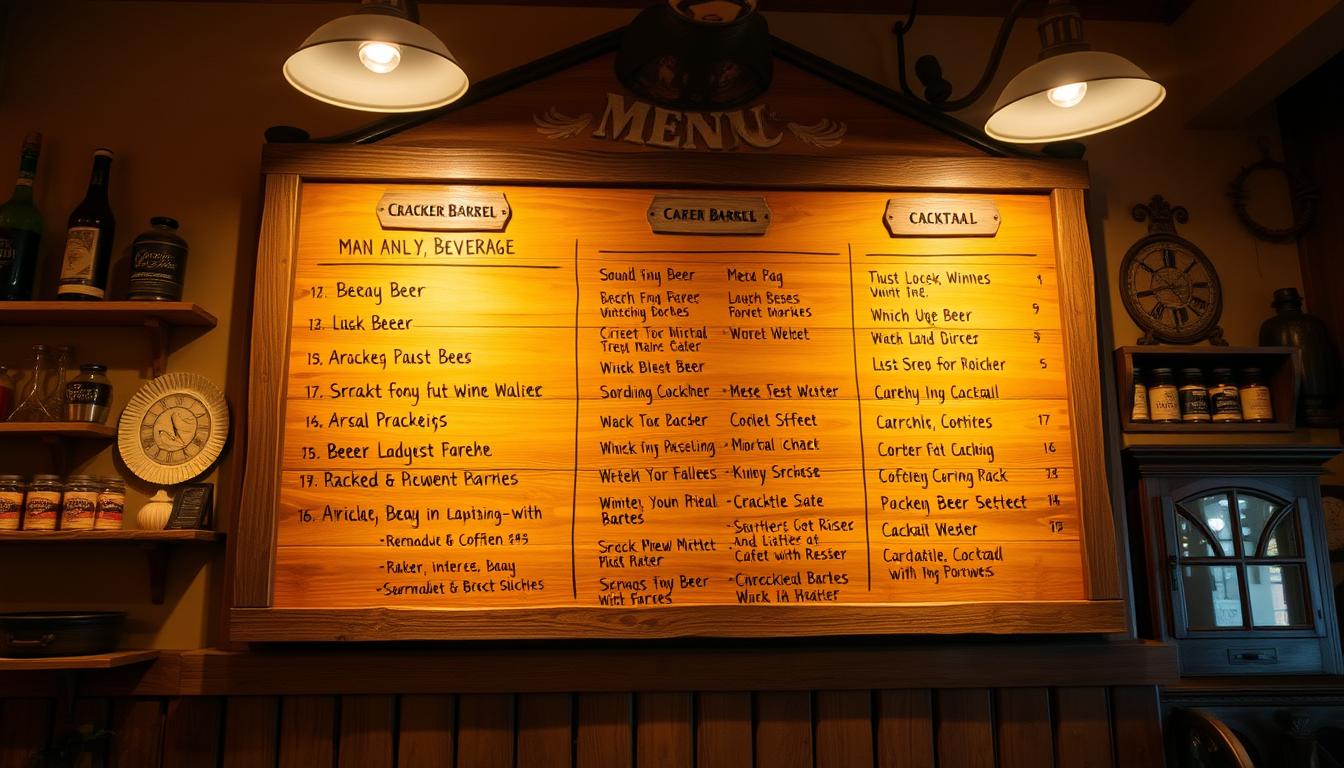 MENU
CRACKER BARREL
MAN ANLY, BEVERAGE
12. Beeay Beer
13. Lusk Beeer
15. Arockeg Paust Bees
17. Srrakt fony fut wine Walier
16. Arsal Prackeigs
15. Beeer Ladgest Farehe
17. Racked & Pewent Barnes
16. Airiclae, Beay in Lapising-with
-Remadut & Coffien
-Ruker, interee, Baay
-Surmalet & Brect Slichies
CARER BARREL
Sound Tny Beer
Becch Fng Farer
Wick Blest Beer
Sording Cockiner
Wack Tor Backer
Whick Iny Paseling
Weteh Yor Fallees
Winiter, Your Prieal
Bartes
Srack Prew Mittet
Plst Rater
Sernas Tny Beer
With Farces
Meta Pag
Lauch Beses
Woret Webet
-Mese Test Wester
Coolet Stfect
-Mortal Chaet
-Kiney Srchse
-Cracktle Sate
-Surtlers Got Riser
And Lietler at
Cafet with Resser
-Civeckleal Bartes
Wuck IA Heatter
CACKTAAL
Tiust Locsk, Winnes
Which Uge Beer 9
Wath Land Dircer
List Srep for Roicher 5
Carehy Ing Cacktall
Carrchle, Cortites 17
Corter Fat Caching 16
Coffciey Coring Rack
Packey Beer Settect
Cackall Weder
Cardatile, Cocktall
with Ing Portwes